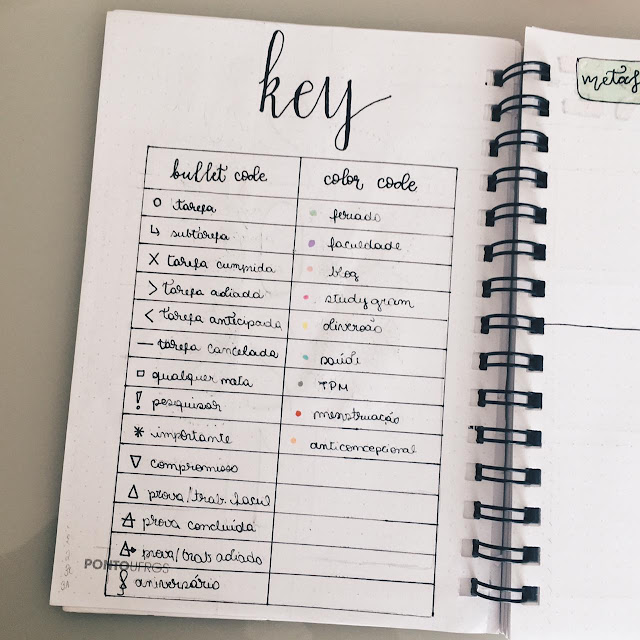 key
metas
bullet code color code
o tarefa feriado
↳ subtarefa faculdade
X tarefa cumprida blog
> tarefa adiada studygram
< tarefa antecipada diversão
— tarefa cancelada saúde
□ qualquer nota TPM
! pesquisar menstruação
* importante anticoncepcional
▽ compromisso
△ prova/trab. facul
prova concluída
prova/trab adiado
PONTOUFRGS
aniversário